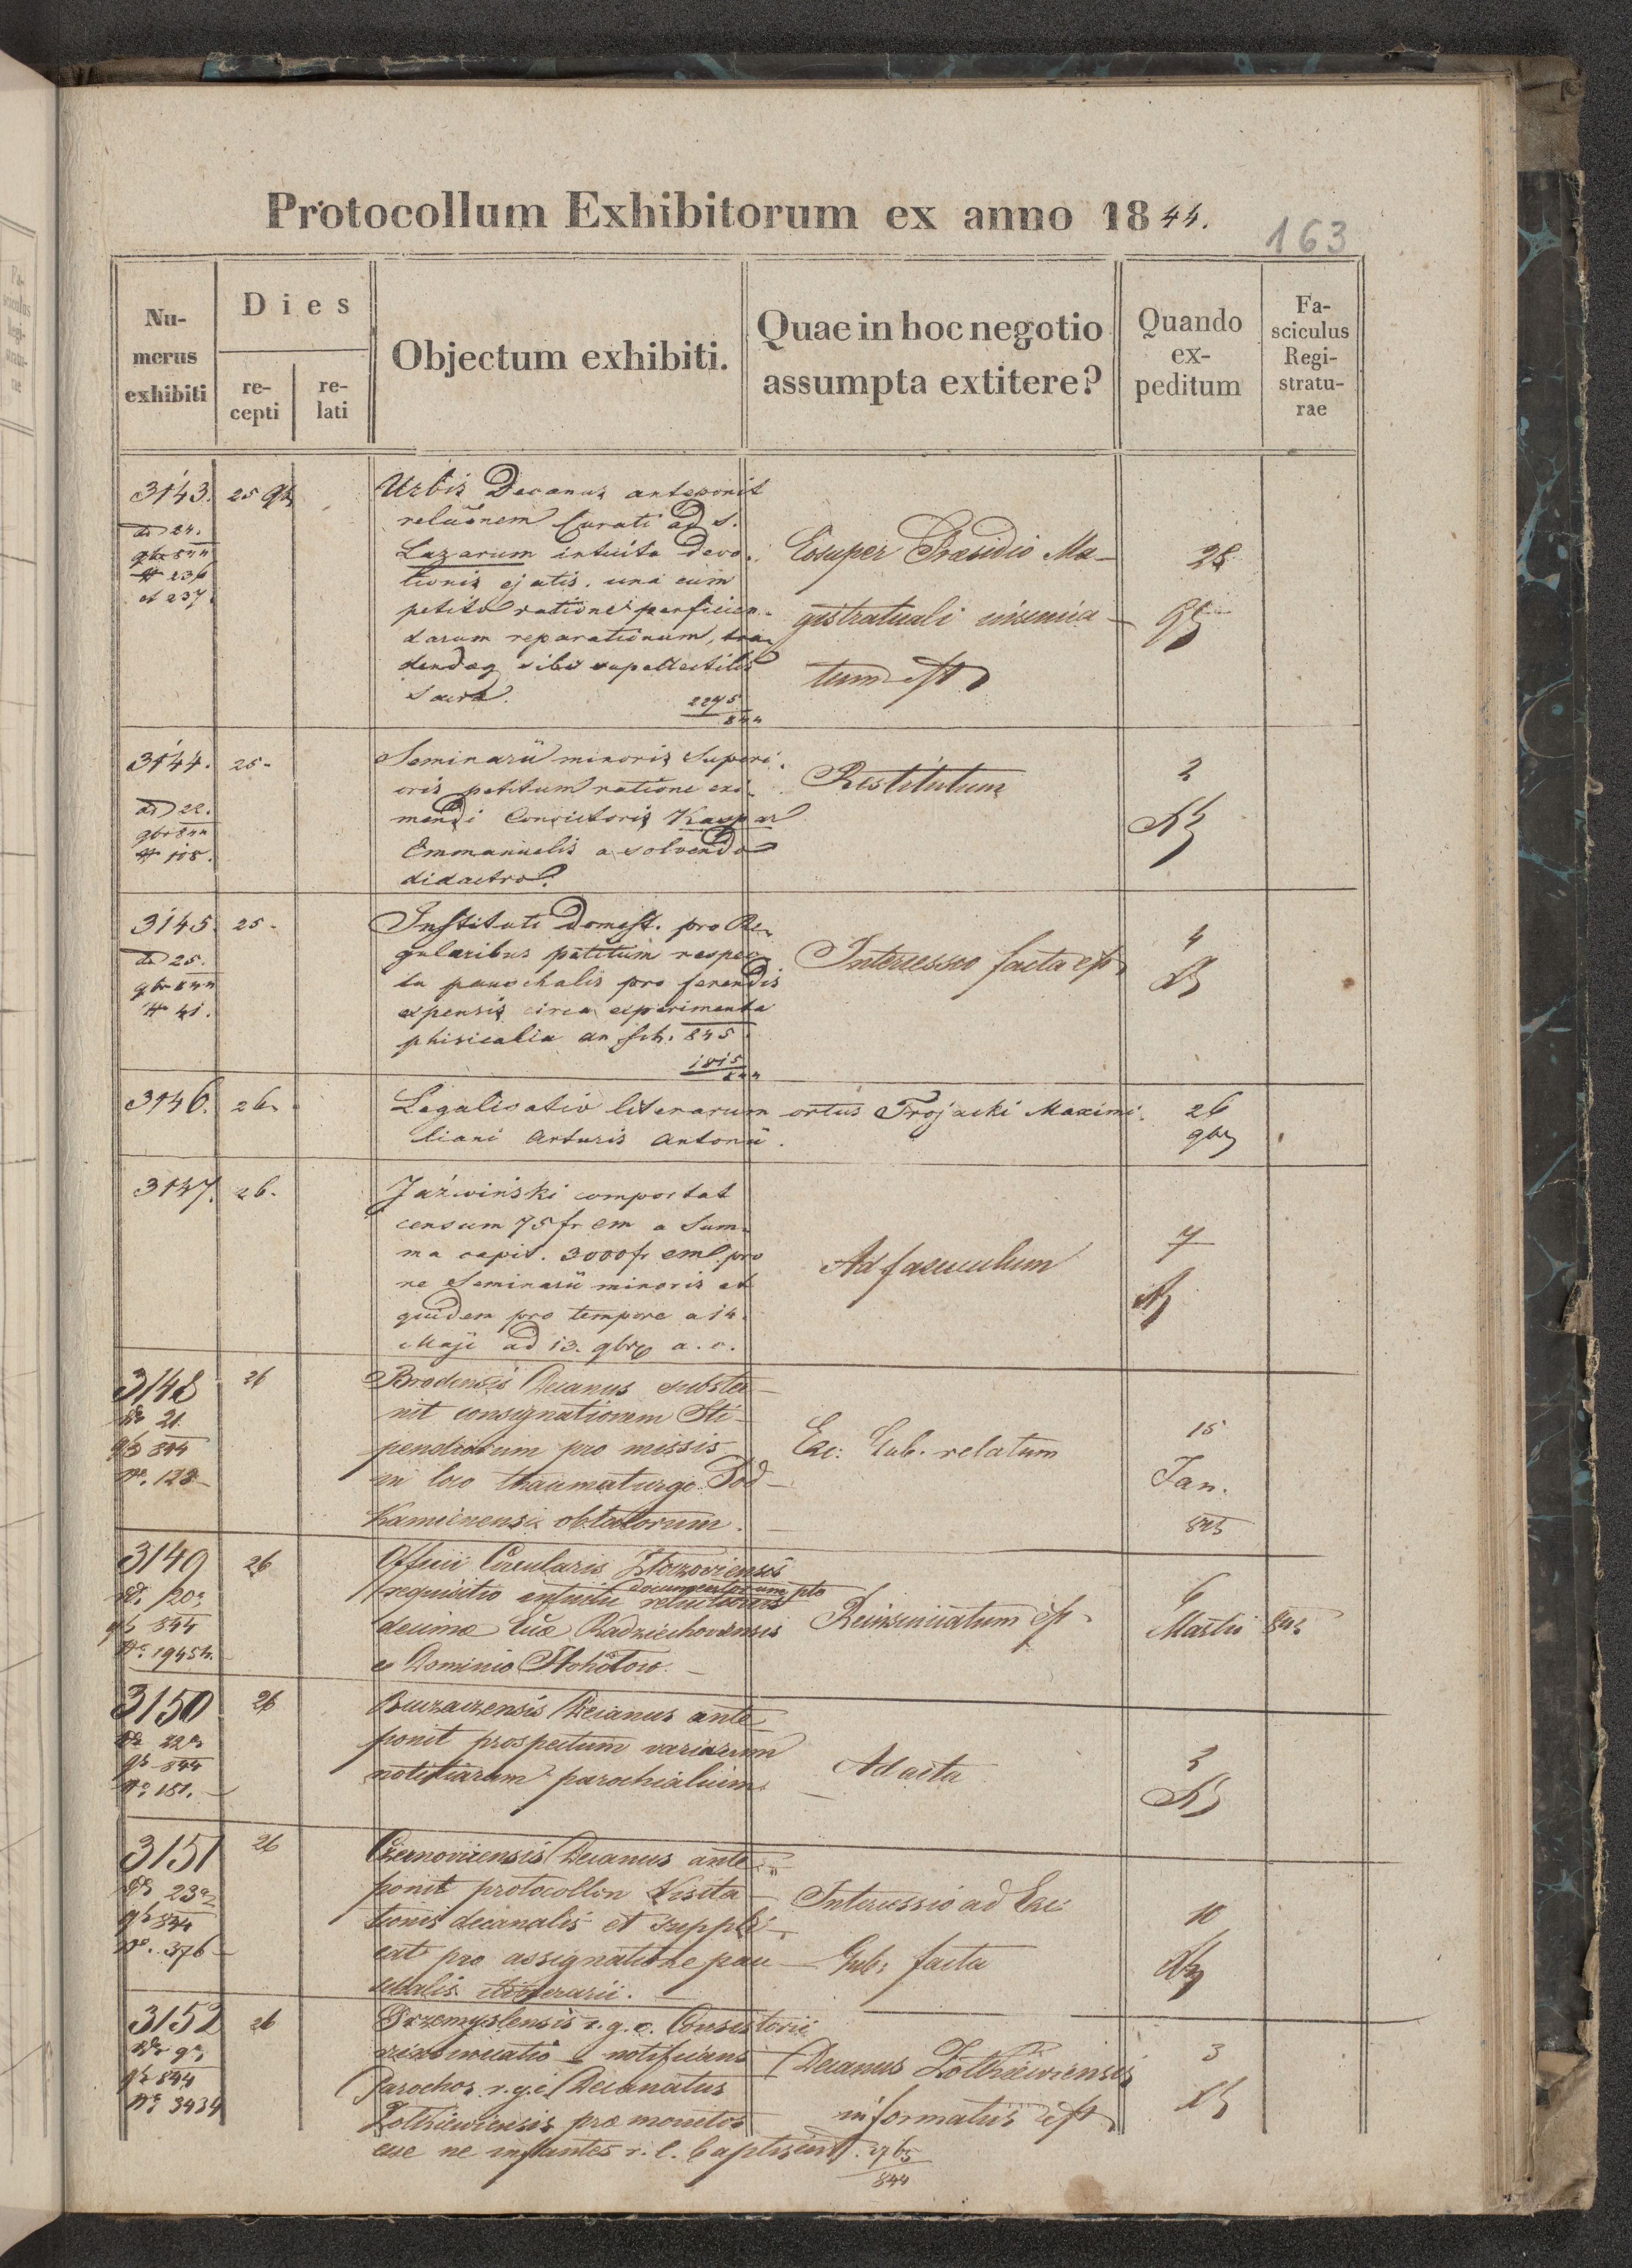 Protocollum Exhibitorum ex anno 1844.
163
Numerus exhibiti
Dies
recepti
relati
Objectum exhibiti.
Quae in hoc negotio assumpta extitere?
Quando expeditum
Fasciculus Registraturae
3143. 25
Urbis Decanus anteponit
dd 24.
relaōnem Curati ad S.
Lazarum intuitu devo-
# 236
et 237.
tionis ejatis. una cum
petito ratione perficien-
darum reparationum, tra-
dendaq sibi supellectilis
Sacra.
2275
844
Eosuper Præsidio Ma-
gistratuali insinua-
tum est
28
3144. 25-
dd 22.
gbr 844
# 108.
Seminarii minoris Superi-
oris petitum ratione exi-
mendi Convictoris Kaspar
Emmanuelis a solvendo
didactro.
Restitutum
2
3145. 25-
dd 25.
gbr 844
# 41.
Instituti domest. pro Re-
gularibus petitum respec-
tu pauschalis pro ferendis
expensis circa experimenta
phisicalia an sch. 845
1815
844
Intercessio facta est
4
3146. 26.
Legalisatio literarum ortus Trojacki Maximi-
liani Arturis Antonii.
26
gbr
3147. 26.
Jaźwiński comportat
censum 75 fr em a Sum-
ma capit. 3000 fr em pro
re Seminarii minoris et
quidem pro tempore a 14.
Maji ad 13. gbr a. c.
Ad fasciculum
7
3148 26
dd 21.
844
No. 128
Brodensis Decanus subster-
nit consignationem Sti-
pendiorum pro missis
in loco thaumaturgo Pod-
kaminensi oblatorum.
Exc: Gub. relatum
15
Jan.
845
3149 26
dd. 20
844
No. 19454.
Officii Circularis Złoczoviensis
requisitio intuitu documentorum pto
decimæ Ecīæ Radziechoviensis
e Dominio Stohotow.
Reinsinuatum est
6
Martii 845
3150 26
dd 22
844
No. 181.
Buczaczensis Decanus ante-
ponit prospectum variarum
notitiarum parochialium
Ad acta
2
3151 26
dd 23
844
No. 376
Czernoviensis Decanus ante-
ponit protocollon Visita-
tionis decanalis et suppli-
cat pro assignatione pau-
schalis itinerarii.
Intercessio ad Exc:
Gub: facta
10
3152 26
dd 9
844
No. 3434
Przemyslensis r. g. c. Consistorii
reinsinuatio notificans
Parochos r. g. c. Decanatus
Zolkiewiensis præmonitos
esse ne infantes r. l. baptisent. 2765
844
Decanus Zolkiewiensis
informatus est
3